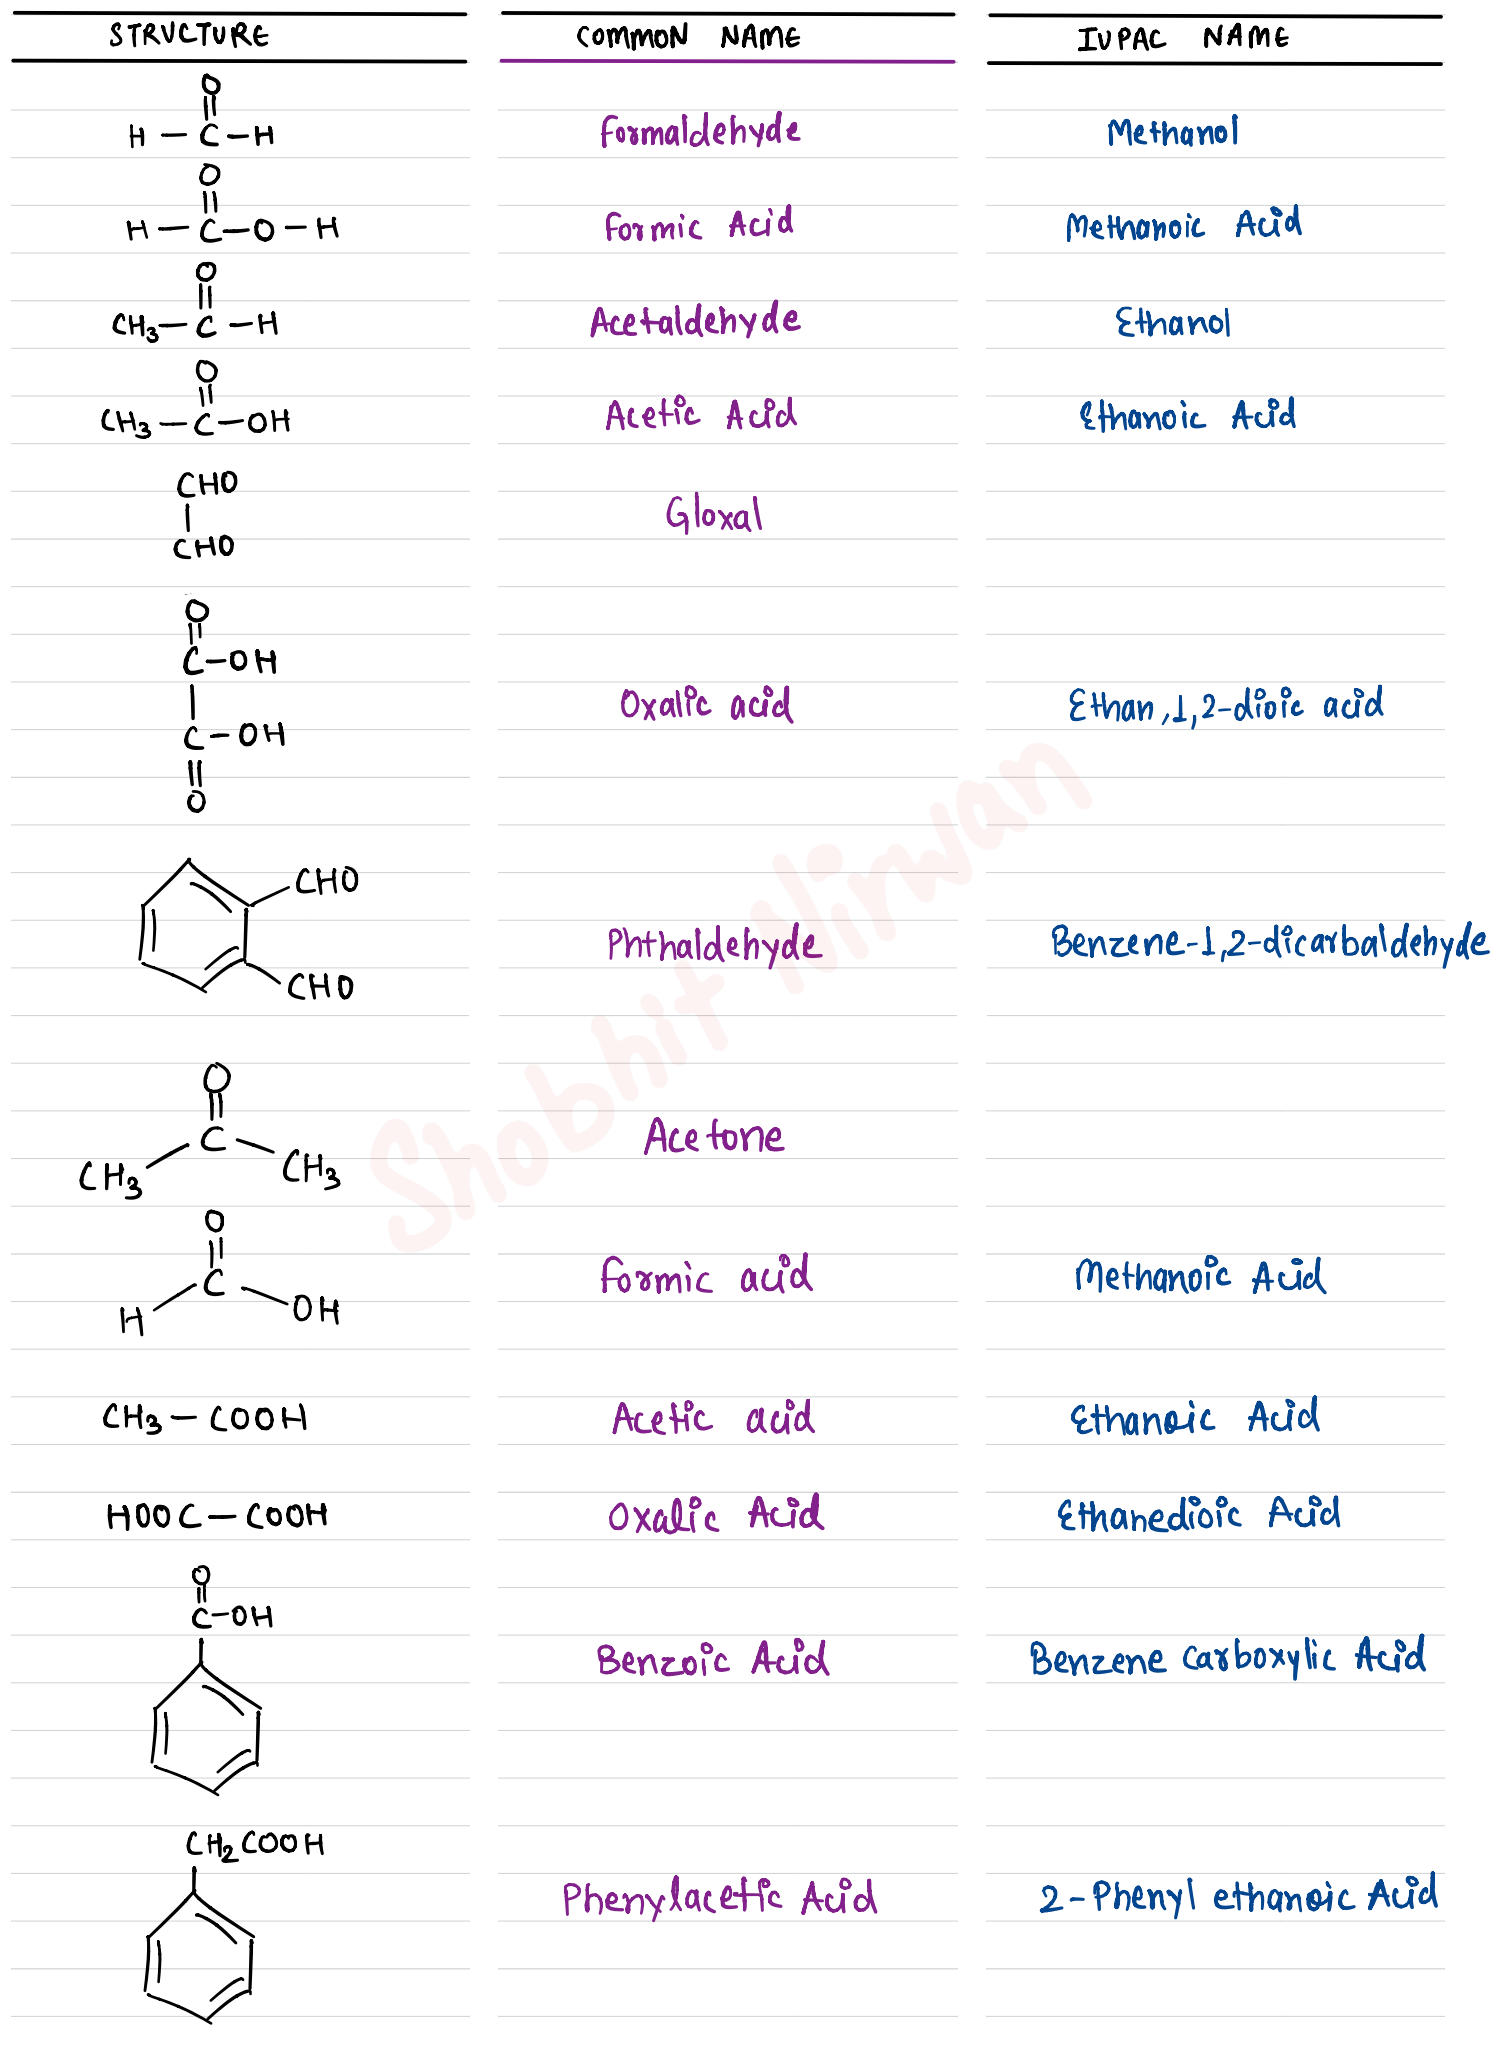 STRUCTURE COMMON NAME IUPAC NAME
O
H - C - H Formaldehyde Methanol
O
H - C - O - H Formic Acid Methanoic Acid
O
CH3 - C - H Acetaldehyde Ethanol
O
CH3 - C - OH Acetic Acid Ethanoic Acid
CHO
Gloxal
CHO
O
C - OH
Oxalic acid Ethan,1,2-dioic acid
C - OH
O
CHO
Phthaldehyde Benzene-1,2-dicarbaldehyde
CHO
O
C Acetone
CH3 CH3
O
C Formic acid Methanoic Acid
H OH
CH3 - COOH Acetic acid Ethanoic Acid
HOOC - COOH Oxalic Acid Ethanedioic Acid
O
C-OH
Benzoic Acid Benzene Carboxylic Acid
CH2COOH
Phenylacetic Acid 2-Phenyl ethanoic Acid
Shobhit Nirwan